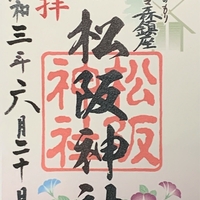 森鎮座
松阪神社
松阪
神社
拝
和三年六月二十日